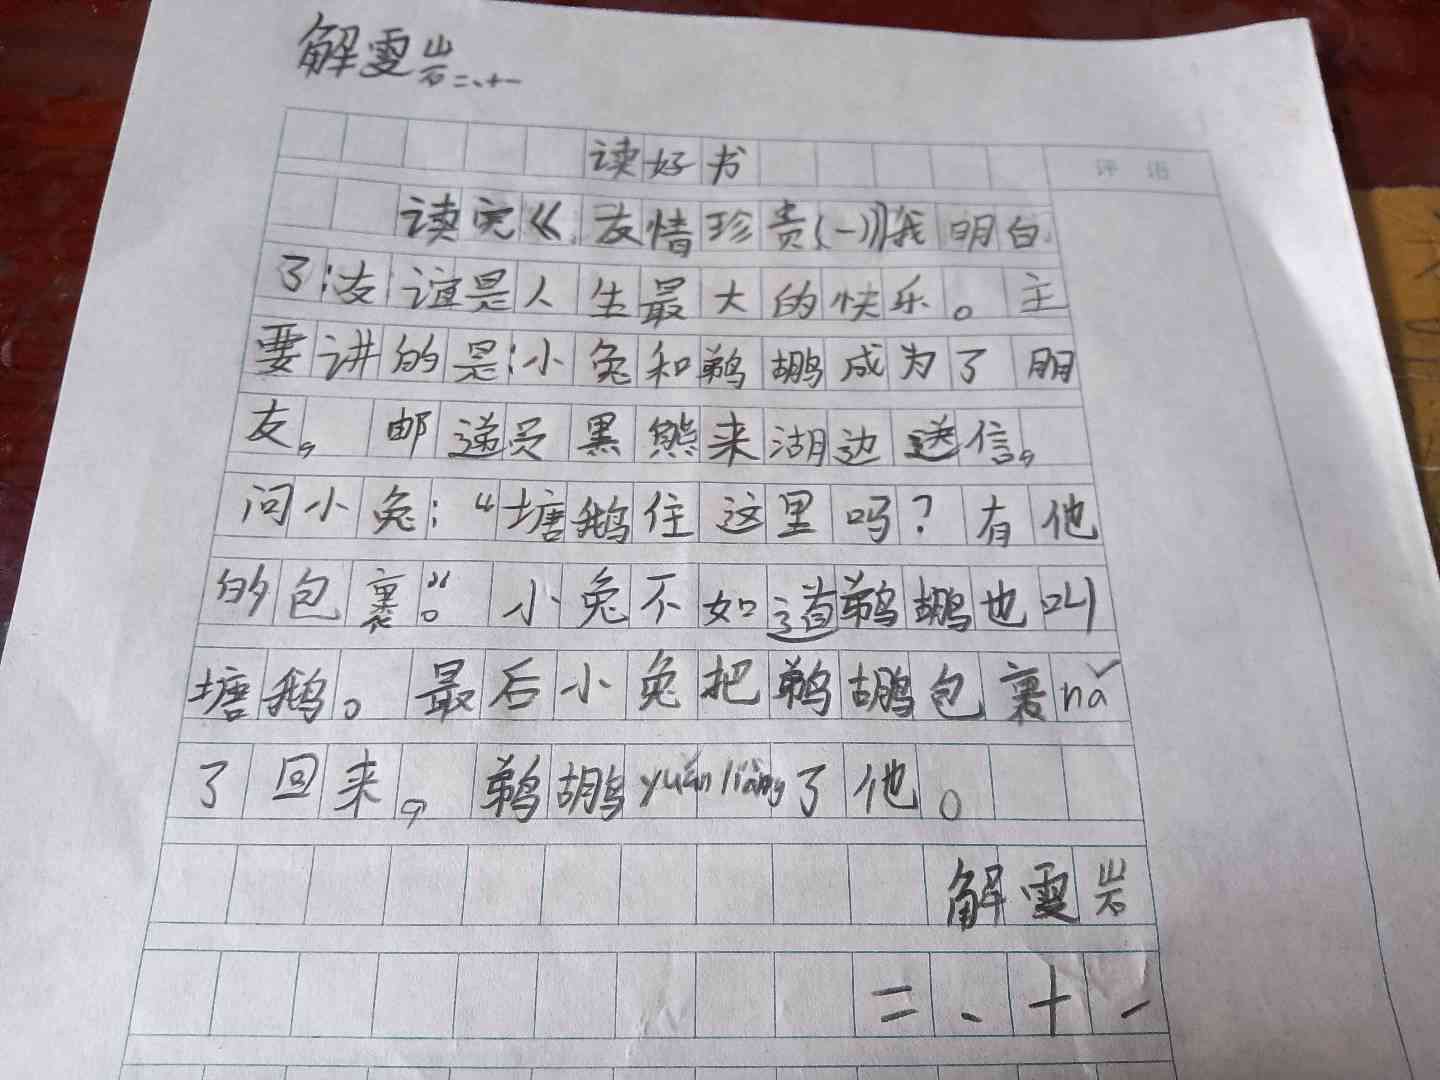 解雯岩二、十一
读好书
评语
读完《友情珍贵(一)》我明白
了:友谊是人生最大的快乐。主
要讲的是:小兔和鹈鹕成为了朋
友，邮递员黑熊来湖边送信，
问小兔:“塘鹅住这里吗?有他
的包裹”。小兔不知道鹈鹕也叫
塘鹅。最后小兔把鹈鹕包裹nǎ
了回来，鹈鹕yuánliàng了他。
解雯岩
二、十一